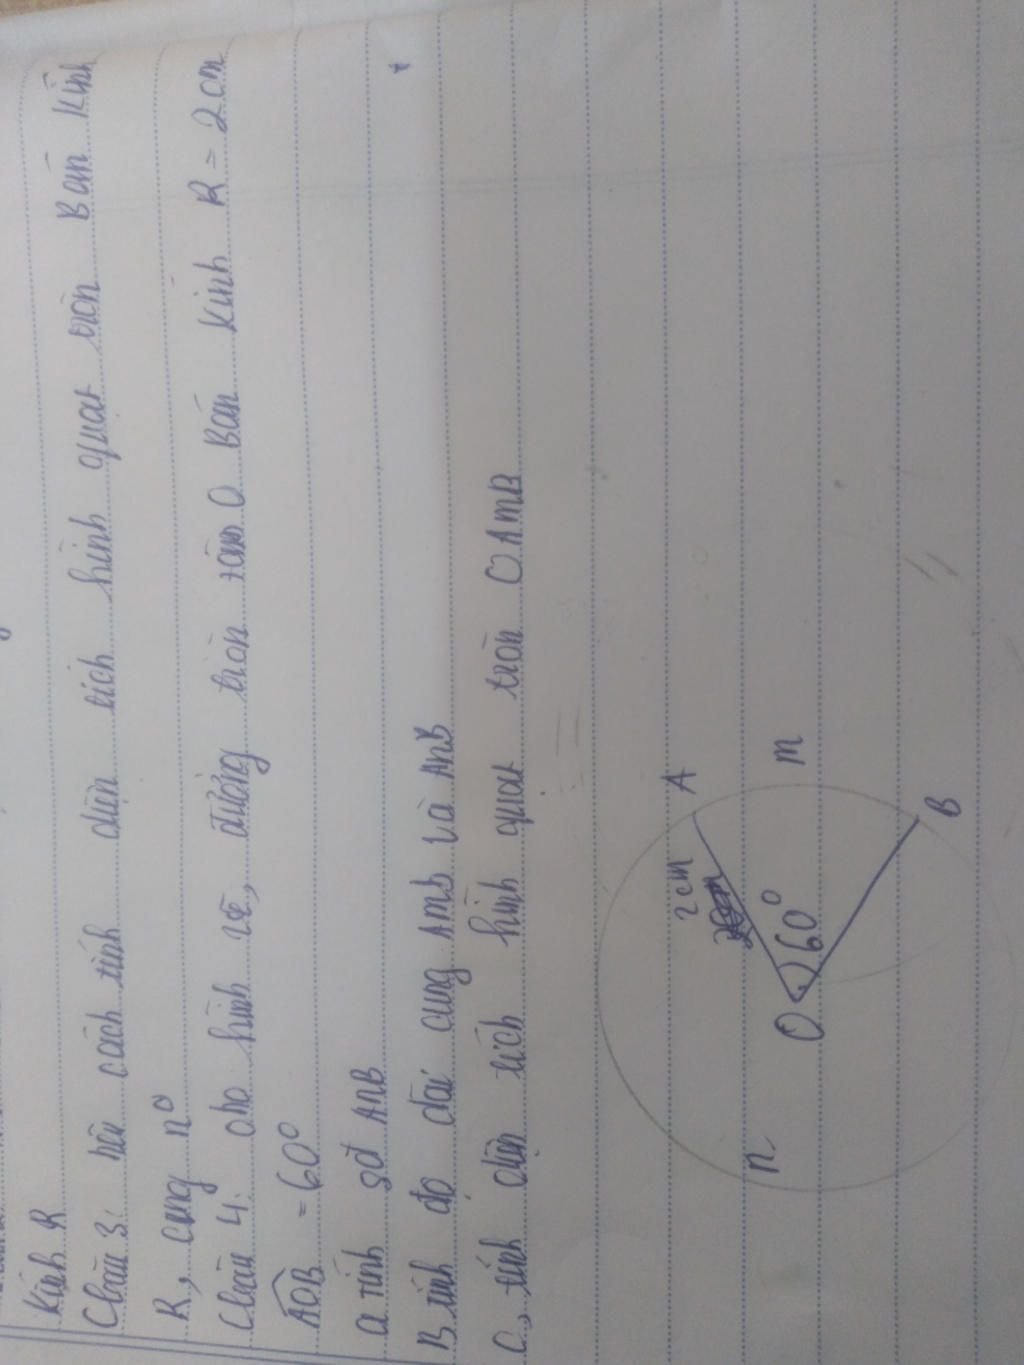 Kính R
Câu 3: nêu cách tính diện tích hình quạt tròn Bán Kính
R, cung n°
Câu 4: cho hình vẽ, đường tròn tâm O Bán Kính R = 2cm
AOB = 60°
a tính sđ AnB
B tính độ dài cung AmB và AnB
C, tính diện tích hình quạt tròn OAmB
A
2cm
m
O 60°
B
n